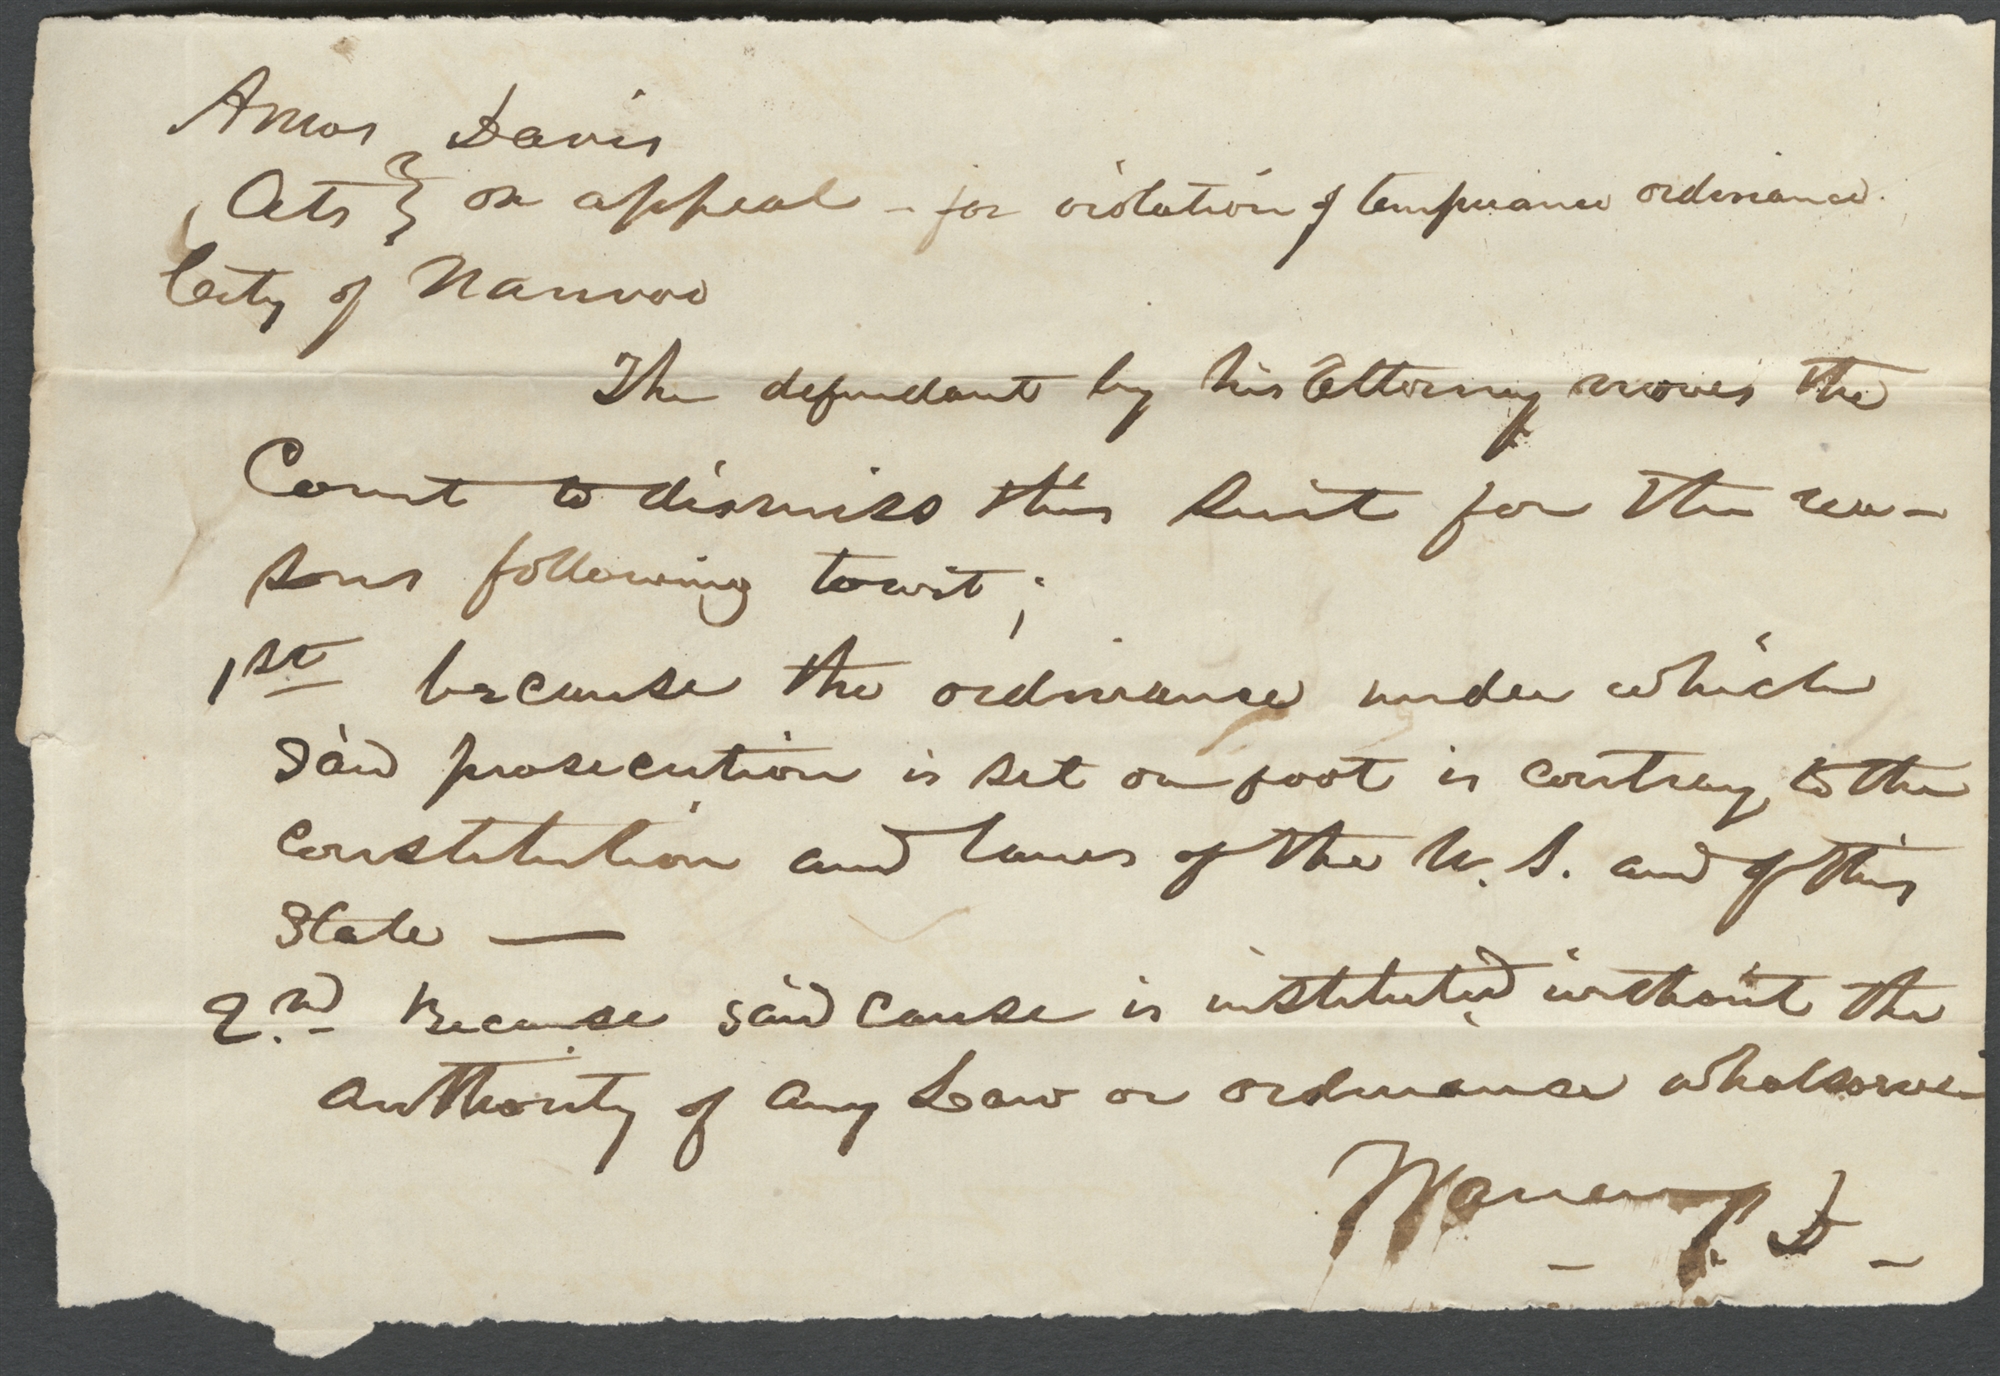 Amos Davis
Ats } on appeal - for violation of temperance ordinance.
City of Nauvoo
The defendant by his Attorney moves the
Court to dismiss this suit for the rea-
sons following towit;
1st because the ordinance under which
said prosecution is set on foot is contray to the
constitution and laws of the U. S. and of this
State —
2nd Because said cause is instituted without the
authority of any Law or ordinance whatsoever
Warren